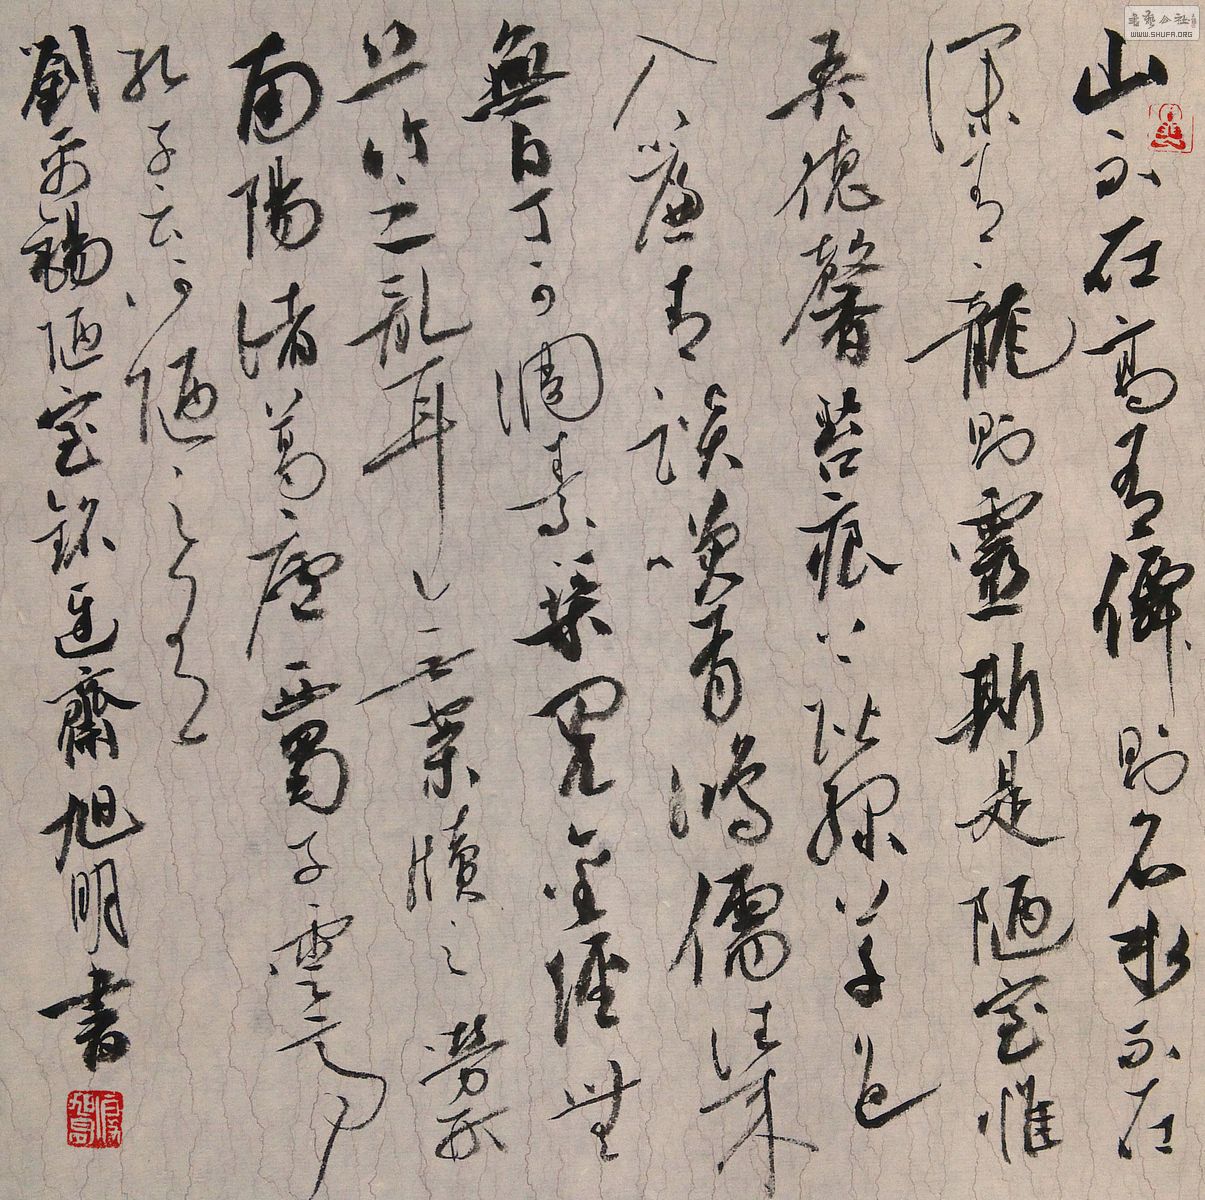 山不在高有僊則名水不在
深有龍則靈斯是陋室惟
吾德馨苔痕上階綠草色
入簾青談笑有鴻儒往來
無白丁可調素琴閱金經無
絲竹之亂耳无案牘之勞形
南陽諸葛廬西蜀子雲亭
孔子云何陋之有
劉禹錫陋室銘齋旭明書
书艺公社
WWW.SHUFA.ORG